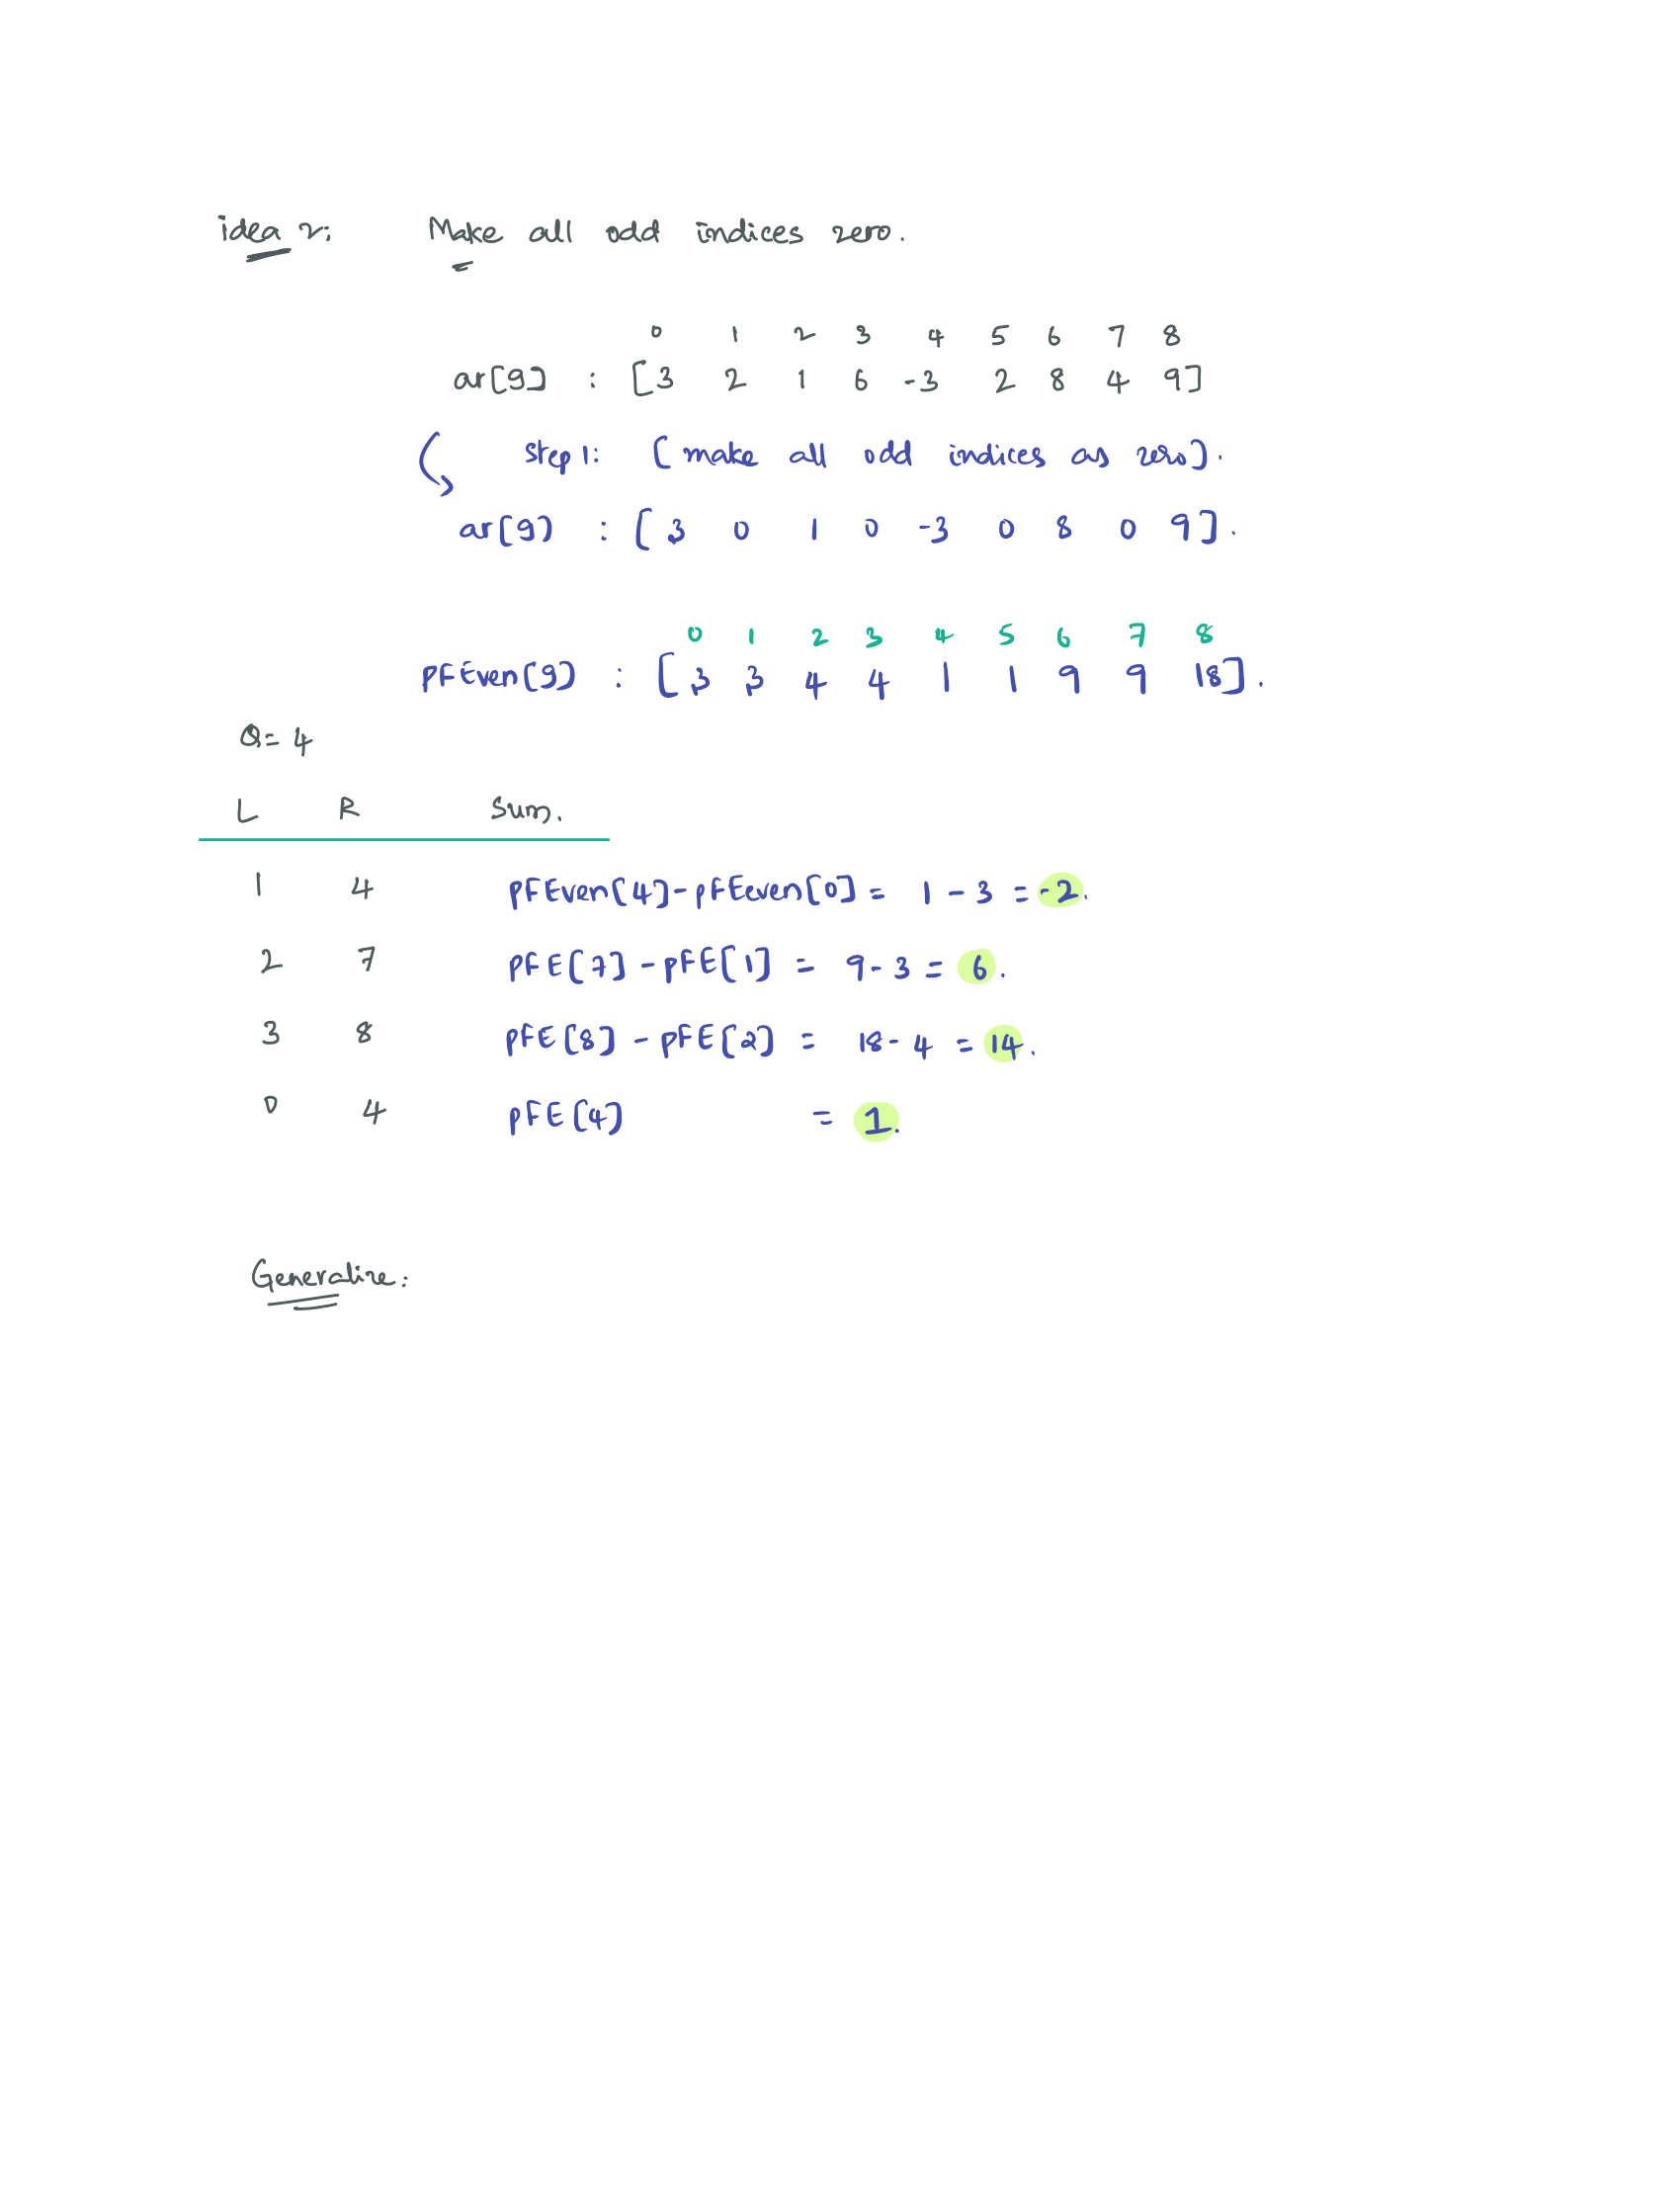 idea 2: Make all odd indices zero.
0 1 2 3 4 5 6 7 8
ar[9] : [3 2 1 6 -3 2 8 4 9]
Step 1: [make all odd indices as zero].
ar[9] : [3 0 1 0 -3 0 8 0 9].
0 1 2 3 4 5 6 7 8
PFEven[9] : [3 3 4 4 1 1 9 9 18].
Q= 4
L R Sum.
1 4 PFEven[4]-pFEeven[0] = 1 - 3 = -2.
2 7 PFE[7] - PFE[1] = 9 - 3 = 6.
3 8 PFE[8] - PFE[2] = 18 - 4 = 14.
0 4 PFE[4] = 1.
Generalize: